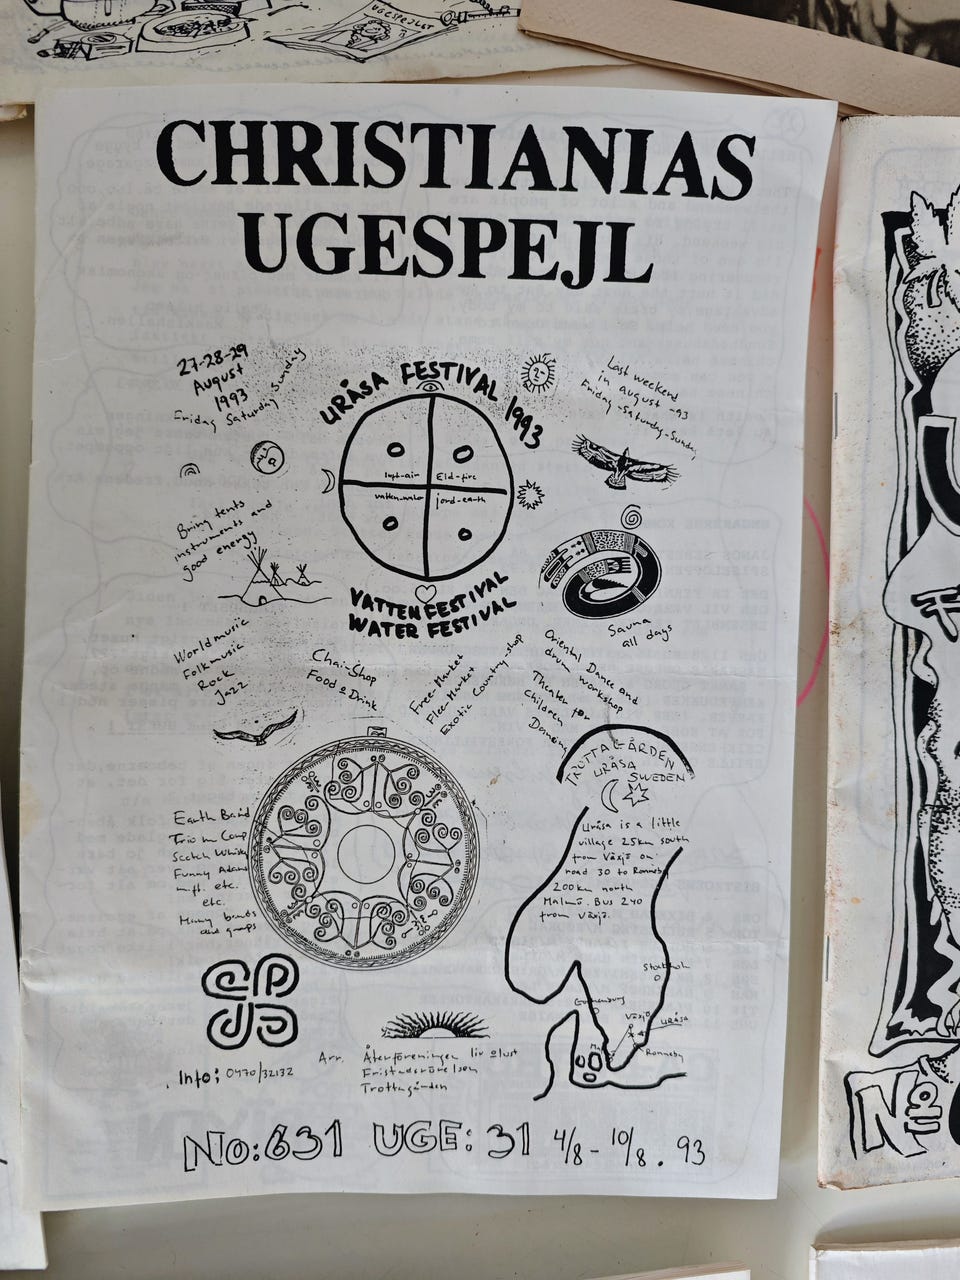 UGESPEJLET
CHRISTIANIAS
UGESPEJL
27-28-29
August
1993
Friday Saturday Sunday
URÅSA FESTIVAL 1993
Last weekend
in august -93
Friday-Saturday-Sunday
luft-air
Eld-fire
vatten-water
jord-earth
Bring tents
instruments and
good energy
VATTENFESTIVAL
WATER FESTIVAL
Sauna
all days
Worldmusic
Folkmusic
Rock
Jazz
Chai-Shop
Food & Drink
Free Market
Flee Market
Exotic Country shop
Oriental Dance and
drum workshop
Theater for
children
Dancing
TROTTAGÅRDEN
URÅSA
SWEDEN
Earth Band
Trio in Coup
Scotch Whisky
Funny Adams
m.fl. etc.
etc.
Many bands
and groups
Uråsa is a little
village 25km south
from Växjö on
road 30 to Ronneby
200km north
Malmö. Bus 240
from Växjö.
Stockholm
Gothenburg
Växjö
URÅSA
Ronneby
Info; 0470/32132
Arr. Återföreningen liv & lust
Fristadsrörelsen
Trottagården
No:631 UGE:31 4/8-10/8.93